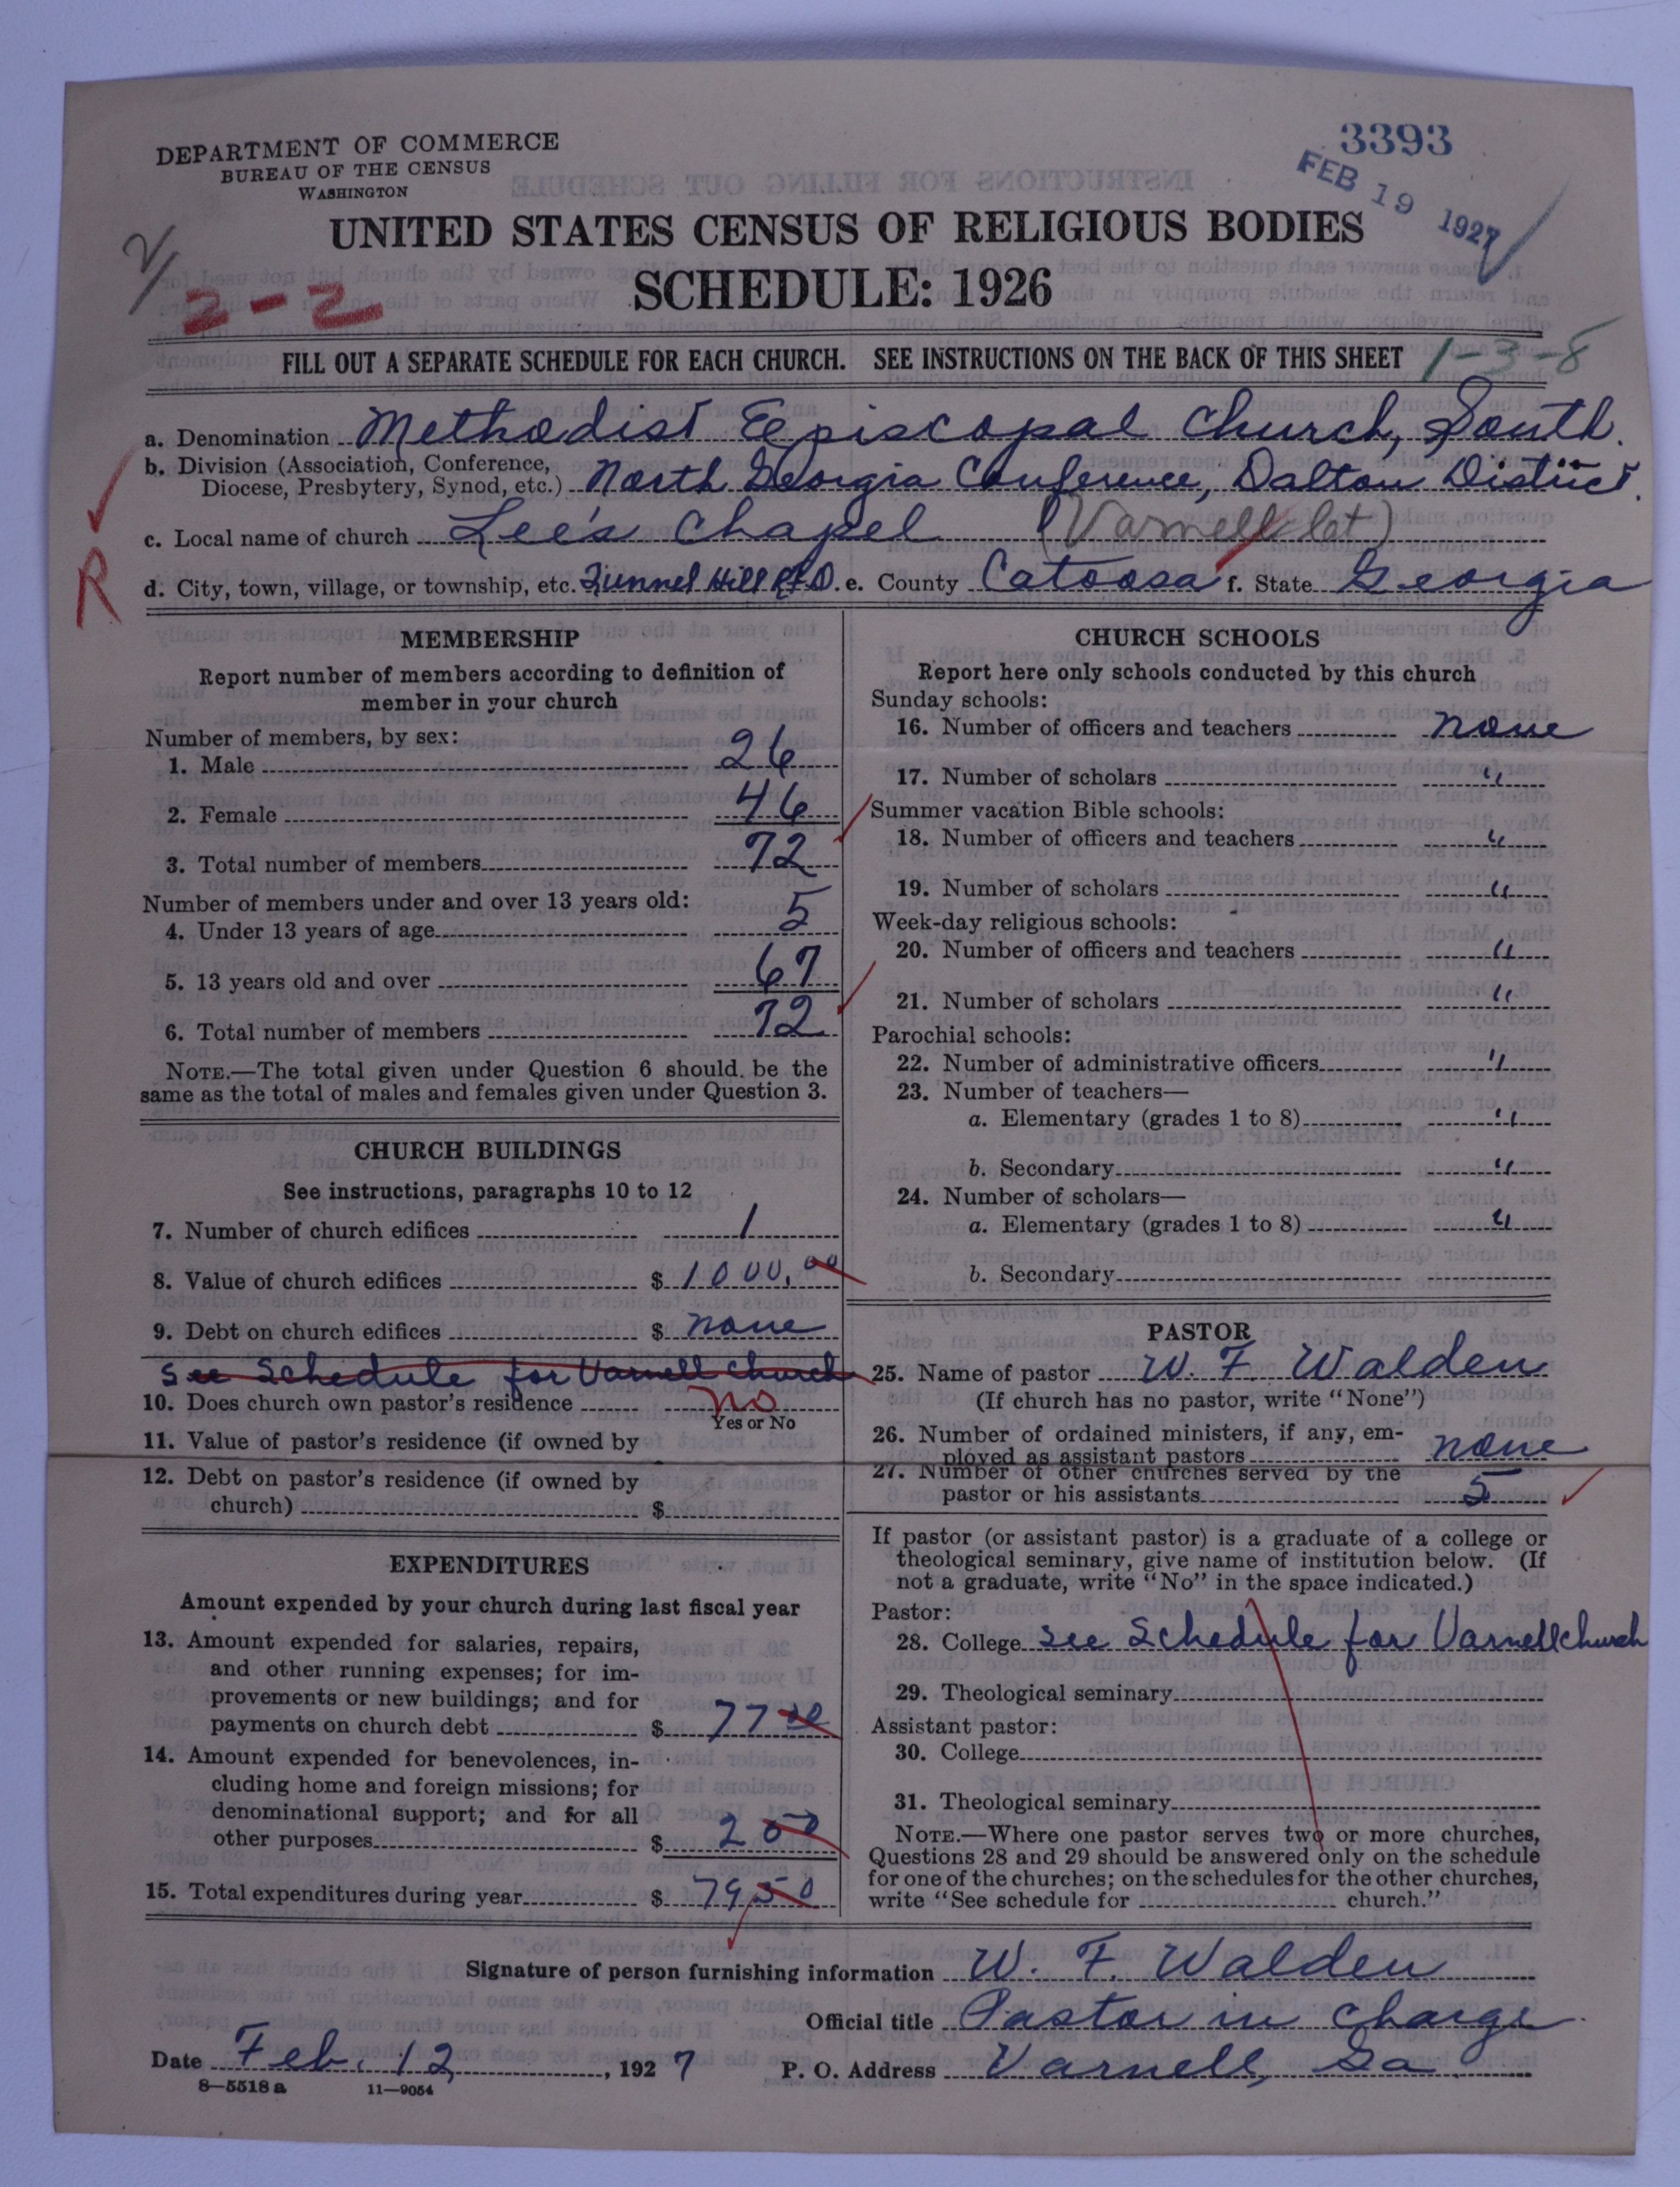 DEPARTMENT OF COMMERCE
BUREAU OF THE CENSUS
WASHINGTON
3393
FEB 19 1927
UNITED STATES CENSUS OF RELIGIOUS BODIES
SCHEDULE: 1926
2-2
FILL OUT A SEPARATE SCHEDULE FOR EACH CHURCH. SEE INSTRUCTIONS ON THE BACK OF THIS SHEET 1-3-8
a. Denomination Methodist Episcopal Church, South.
b. Division (Association, Conference,
Diocese, Presbytery, Synod, etc.) North Georgia Conference, Dalton District.
c. Local name of church Lee's Chapel (Varnell )
R
d. City, town, village, or township, etc. Tunnel Hill RFD. e. County Catoosa f. State Georgia
MEMBERSHIP
Report number of members according to definition of
member in your church
Number of members, by sex:
1. Male 26
2. Female 46
3. Total number of members 72
Number of members under and over 13 years old:
4. Under 13 years of age 5
5. 13 years old and over 67
6. Total number of members 72
NOTE.—The total given under Question 6 should be the
same as the total of males and females given under Question 3.
CHURCH BUILDINGS
See instructions, paragraphs 10 to 12
7. Number of church edifices 1
8. Value of church edifices $ 1000.00
9. Debt on church edifices $ none
See Schedule for Varnell Church
10. Does church own pastor's residence no
Yes or No
11. Value of pastor's residence (if owned by
12. Debt on pastor's residence (if owned by
church) $
EXPENDITURES
Amount expended by your church during last fiscal year
13. Amount expended for salaries, repairs,
and other running expenses; for im-
provements or new buildings; and for
payments on church debt $ 77 00
14. Amount expended for benevolences, in-
cluding home and foreign missions; for
denominational support; and for all
other purposes $ 2 50
15. Total expenditures during year $ 79.50
CHURCH SCHOOLS
Report here only schools conducted by this church
Sunday schools:
16. Number of officers and teachers none
17. Number of scholars "
Summer vacation Bible schools:
18. Number of officers and teachers "
19. Number of scholars "
Week-day religious schools:
20. Number of officers and teachers "
21. Number of scholars "
Parochial schools:
22. Number of administrative officers "
23. Number of teachers—
a. Elementary (grades 1 to 8) "
b. Secondary "
24. Number of scholars—
a. Elementary (grades 1 to 8) "
b. Secondary
PASTOR
25. Name of pastor W. F. Walden
(If church has no pastor, write "None")
26. Number of ordained ministers, if any, em-
ployed as assistant pastors none
27. Number of other churches served by the
pastor or his assistants 5
If pastor (or assistant pastor) is a graduate of a college or
theological seminary, give name of institution below. (If
not a graduate, write "No" in the space indicated.)
Pastor:
28. College See Schedule for Varnell church
29. Theological seminary
Assistant pastor:
30. College
31. Theological seminary
NOTE.—Where one pastor serves two or more churches,
Questions 28 and 29 should be answered only on the schedule
for one of the churches; on the schedules for the other churches,
write "See schedule for church."
Signature of person furnishing information W. F. Walden
Official title Pastor in charge
Date Feb. 12, 1927 P. O. Address Varnell, Ga
8—5518 a 11—9054